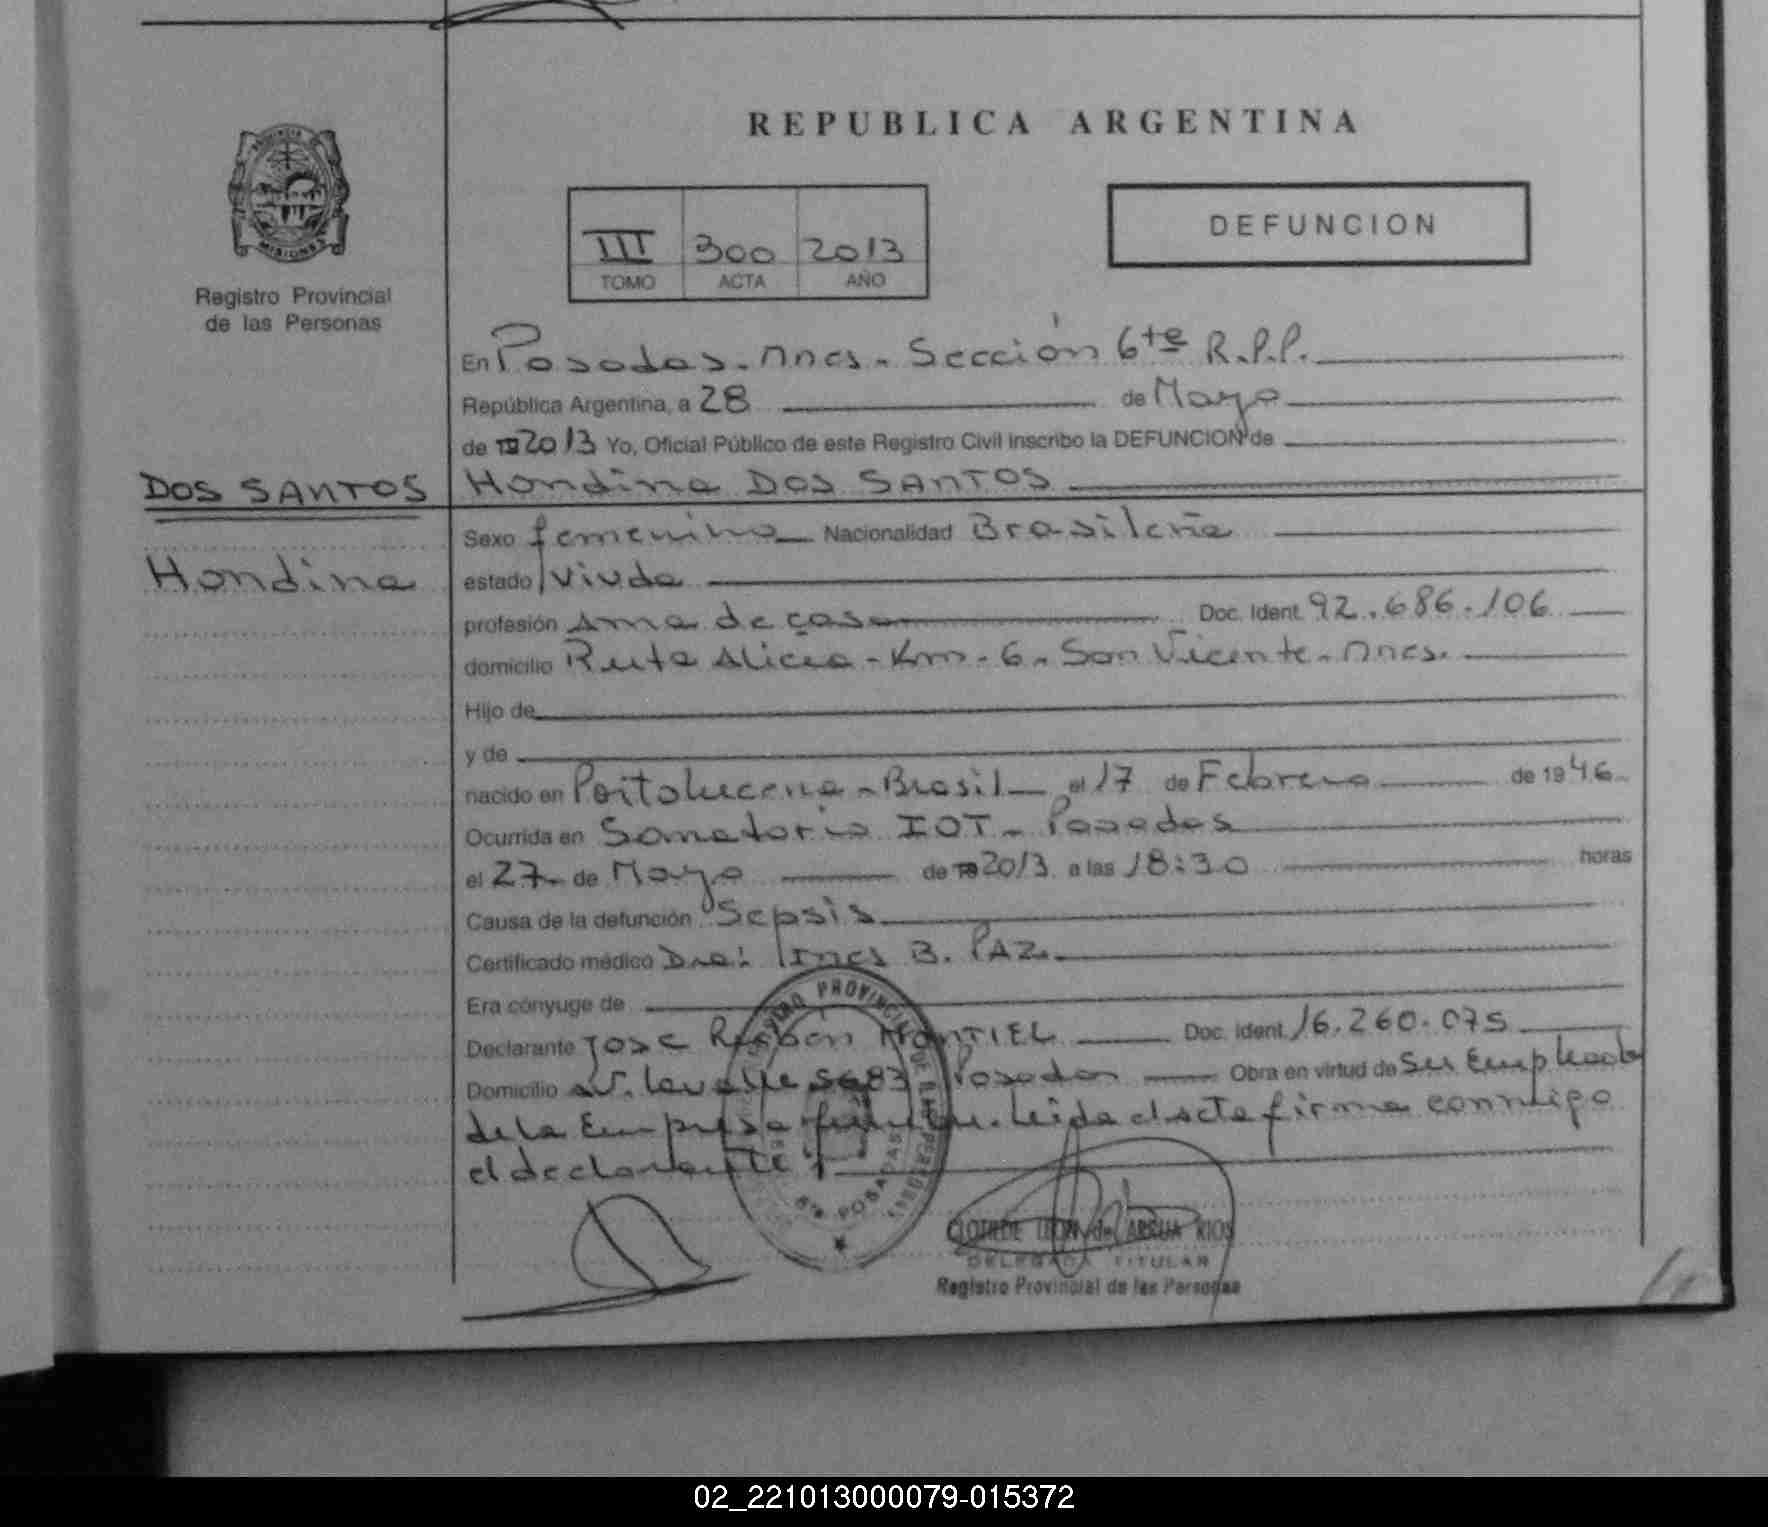 REPUBLICA ARGENTINA
PROVINCIA
MISIONES
Registro Provincial
de las Personas
III 300 2013
TOMO ACTA AÑO
DEFUNCION
En Posadas - Mnes - Sección 6te R.P.P.
República Argentina, a 28 de Mayo
de 19 2013 Yo, Oficial Público de este Registro Civil inscribo la DEFUNCION de
DOS SANTOS
Hondina
Hondina DOS SANTOS
Sexo femenino Nacionalidad Brasileña
estado viuda
profesión Ama de casa Doc. Ident. 92.686.106
domicilio Ruta Alicia - Km - 6 - San Vicente - Mnes.
Hijo de
y de
nacido en Portolucena - Brasil el 17 de Febrero de 1946
Ocurrida en Sanatorio IOT - Posadas
el 27 de Mayo de 19 2013 a las 18:30 horas
Causa de la defunción Sepsis
Certificado médico Dra: Ines B. PAZ
Era cónyuge de
Declarante Jose Ramón MONTIEL Doc. Ident. 16.260.075
Domicilio Av. Lavalle 5683 Posadas Obra en virtud de Ser Empleado
de la Empresa funebre. Leida el acta firma conmigo
el declarante
REGISTRO PROVINCIAL DE LAS PERSONAS
6ta POSADAS
CLOTILDE LEON de ARRUA RIOS
DELEGADA TITULAR
Registro Provincial de las Personas
02_221013000079-015372